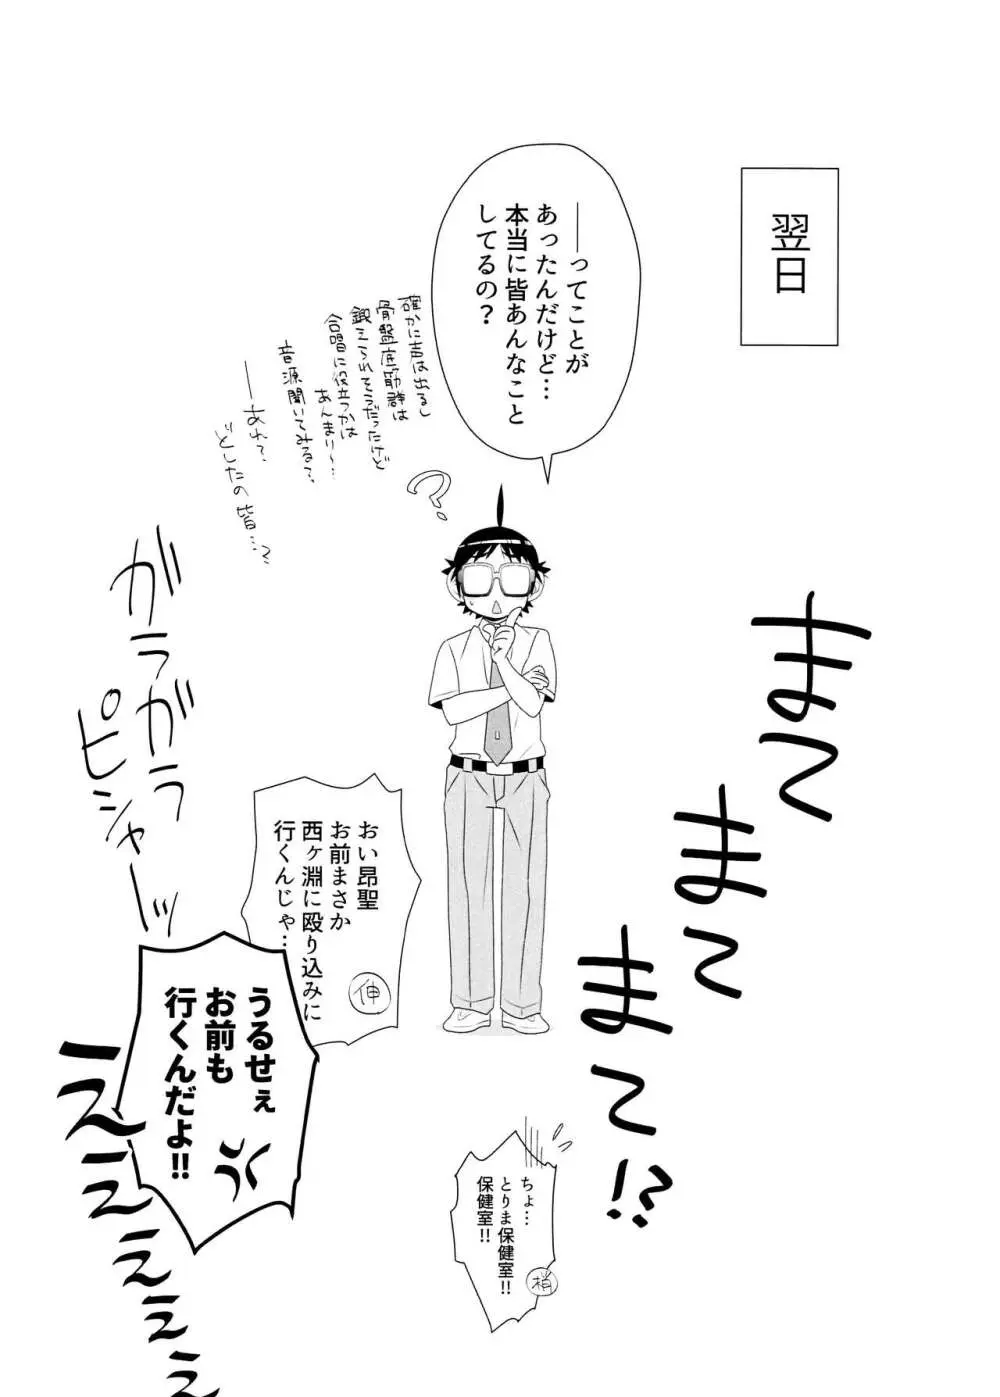 翌日
――ってことが
あったんだけど…
本当に皆あんなこと
してるの？
確かに声は出るし
骨盤底筋群は
鍛えられそうだったけど
合唱に役立つかは
あんまり〜…
音源聞いてみる？
――あれ？
どしたの皆…？
？
まてまてまて!?
ガラガラ
ピシャーーッ
おい昂聖
お前まさか
西ヶ淵に殴り込みに
行くんじゃ…
伸
うるせぇ
お前も
行くんだよ!!
えええええ
ちょ…
とりま保健室!!
保健室!!